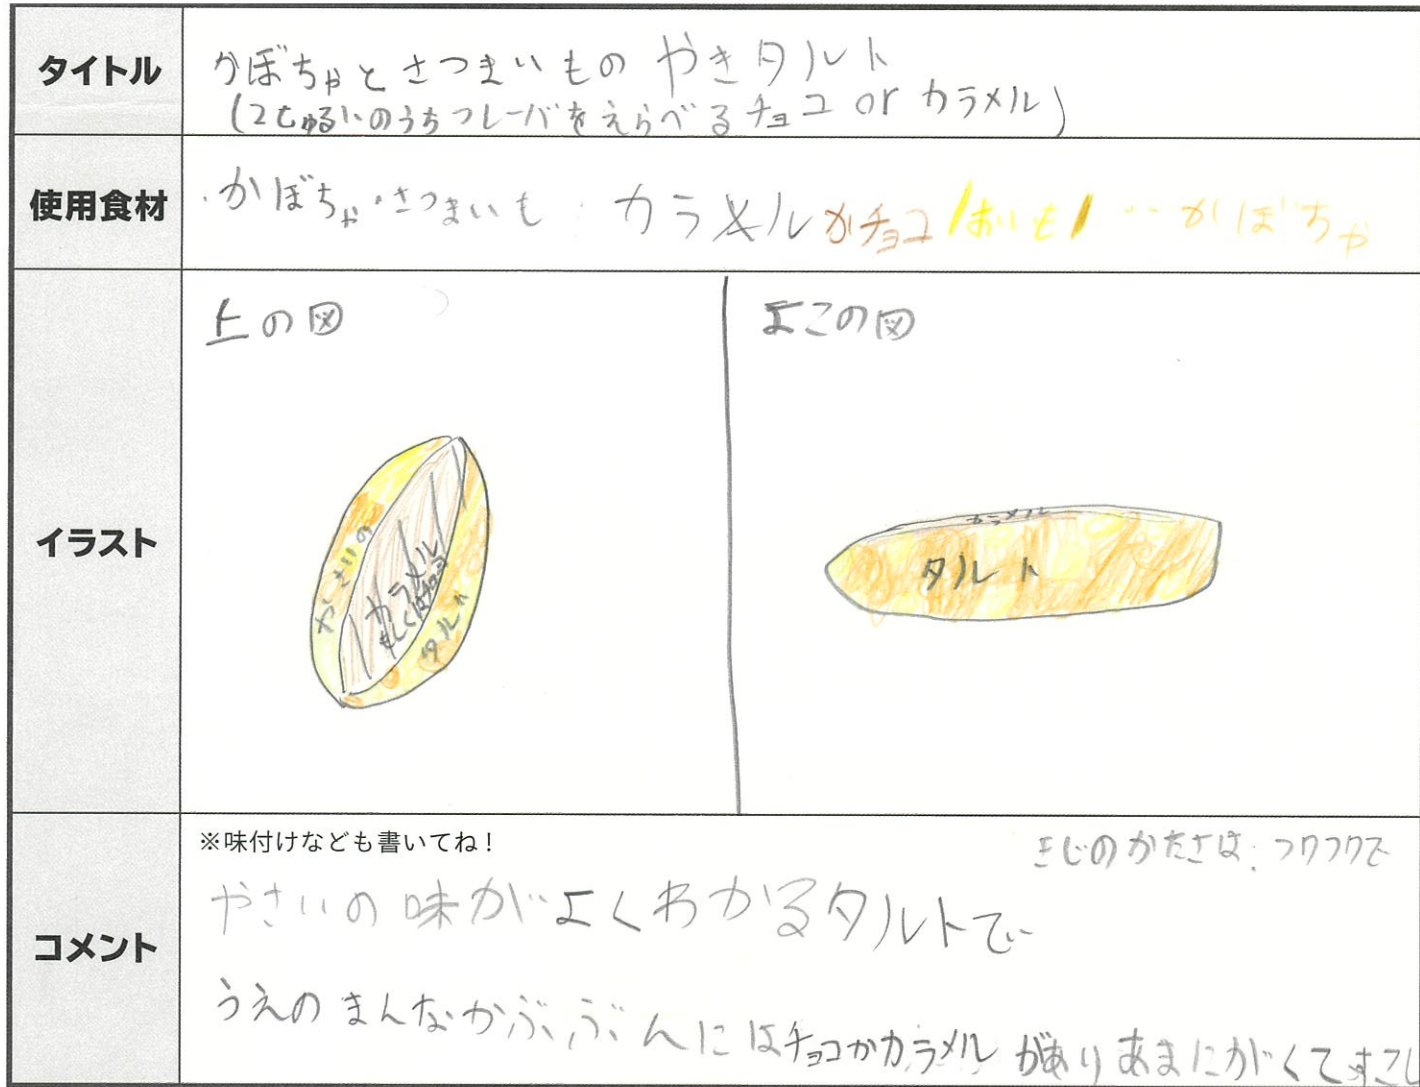 タイトル
かぼちゃとさつまいもの やきタルト
(2しゅるいのうちフレーバをえらべるチョコ or カラメル)
使用食材
・かぼちゃ・さつまいも・カラメルかチョコ /おいも/ …かぼちゃ
イラスト
上の図
よこの図
カラメル
もしくはチョコ
タルト
やさいの
カラメル
タルト
コメント
※味付けなども書いてね！
きじのかたさは:フワフワで
やさいの味がよくわかるタルトで
うえのまんなかぶぶんにはチョコかカラメルがありあまにがくてすこし